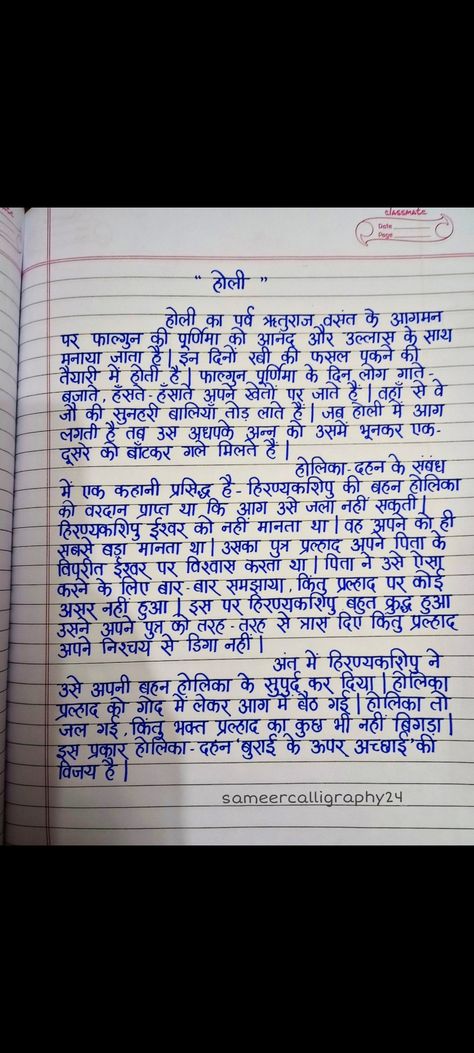 classmate
Date
Page
" होली "
होली का पर्व ऋतुराज वसंत के आगमन
पर फाल्गुन की पूर्णिमा को आनंद और उल्लास के साथ
मनाया जाता है | इन दिनों रबी की फसल पकने की
तैयारी में होती है | फाल्गुन पूर्णिमा के दिन लोग गाते-
बजाते, हँसते-हँसाते अपने खेतों पर जाते हैं | वहाँ से वे
जौ की सुनहरी बालियाँ तोड़ लाते हैं | जब होली में आग
लगती है तब उस अधपके अन्न को उसमें भूनकर एक-
दूसरे को बाँटकर गले मिलते हैं |
होलिका-दहन के संबंध
में एक कहानी प्रसिद्ध है - हिरण्यकशिपु की बहन होलिका
को वरदान प्राप्त था कि आग उसे जला नहीं सकती |
हिरण्यकशिपु ईश्वर को नहीं मानता था | वह अपने को ही
सबसे बड़ा मानता था | उसका पुत्र प्रल्हाद अपने पिता के
विपरीत ईश्वर पर विश्वास करता था | पिता ने उसे ऐसा
करने के लिए बार-बार समझाया, किंतु प्रल्हाद पर कोई
असर नहीं हुआ | इस पर हिरण्यकशिपु बहुत क्रुद्ध हुआ
उसने अपने पुत्र को तरह-तरह से त्रास दिए किंतु प्रल्हाद
अपने निश्चय से डिगा नहीं |
अंत में हिरण्यकशिपु ने
उसे अपनी बहन होलिका के सुपुर्द कर दिया | होलिका
प्रल्हाद को गोद में लेकर आग में बैठ गई | होलिका तो
जल गई, किंतु भक्त प्रल्हाद का कुछ भी नहीं बिगड़ा |
इस प्रकार होलिका-दहन 'बुराई के ऊपर अच्छाई' की
विजय है |
sameercalligraphy24